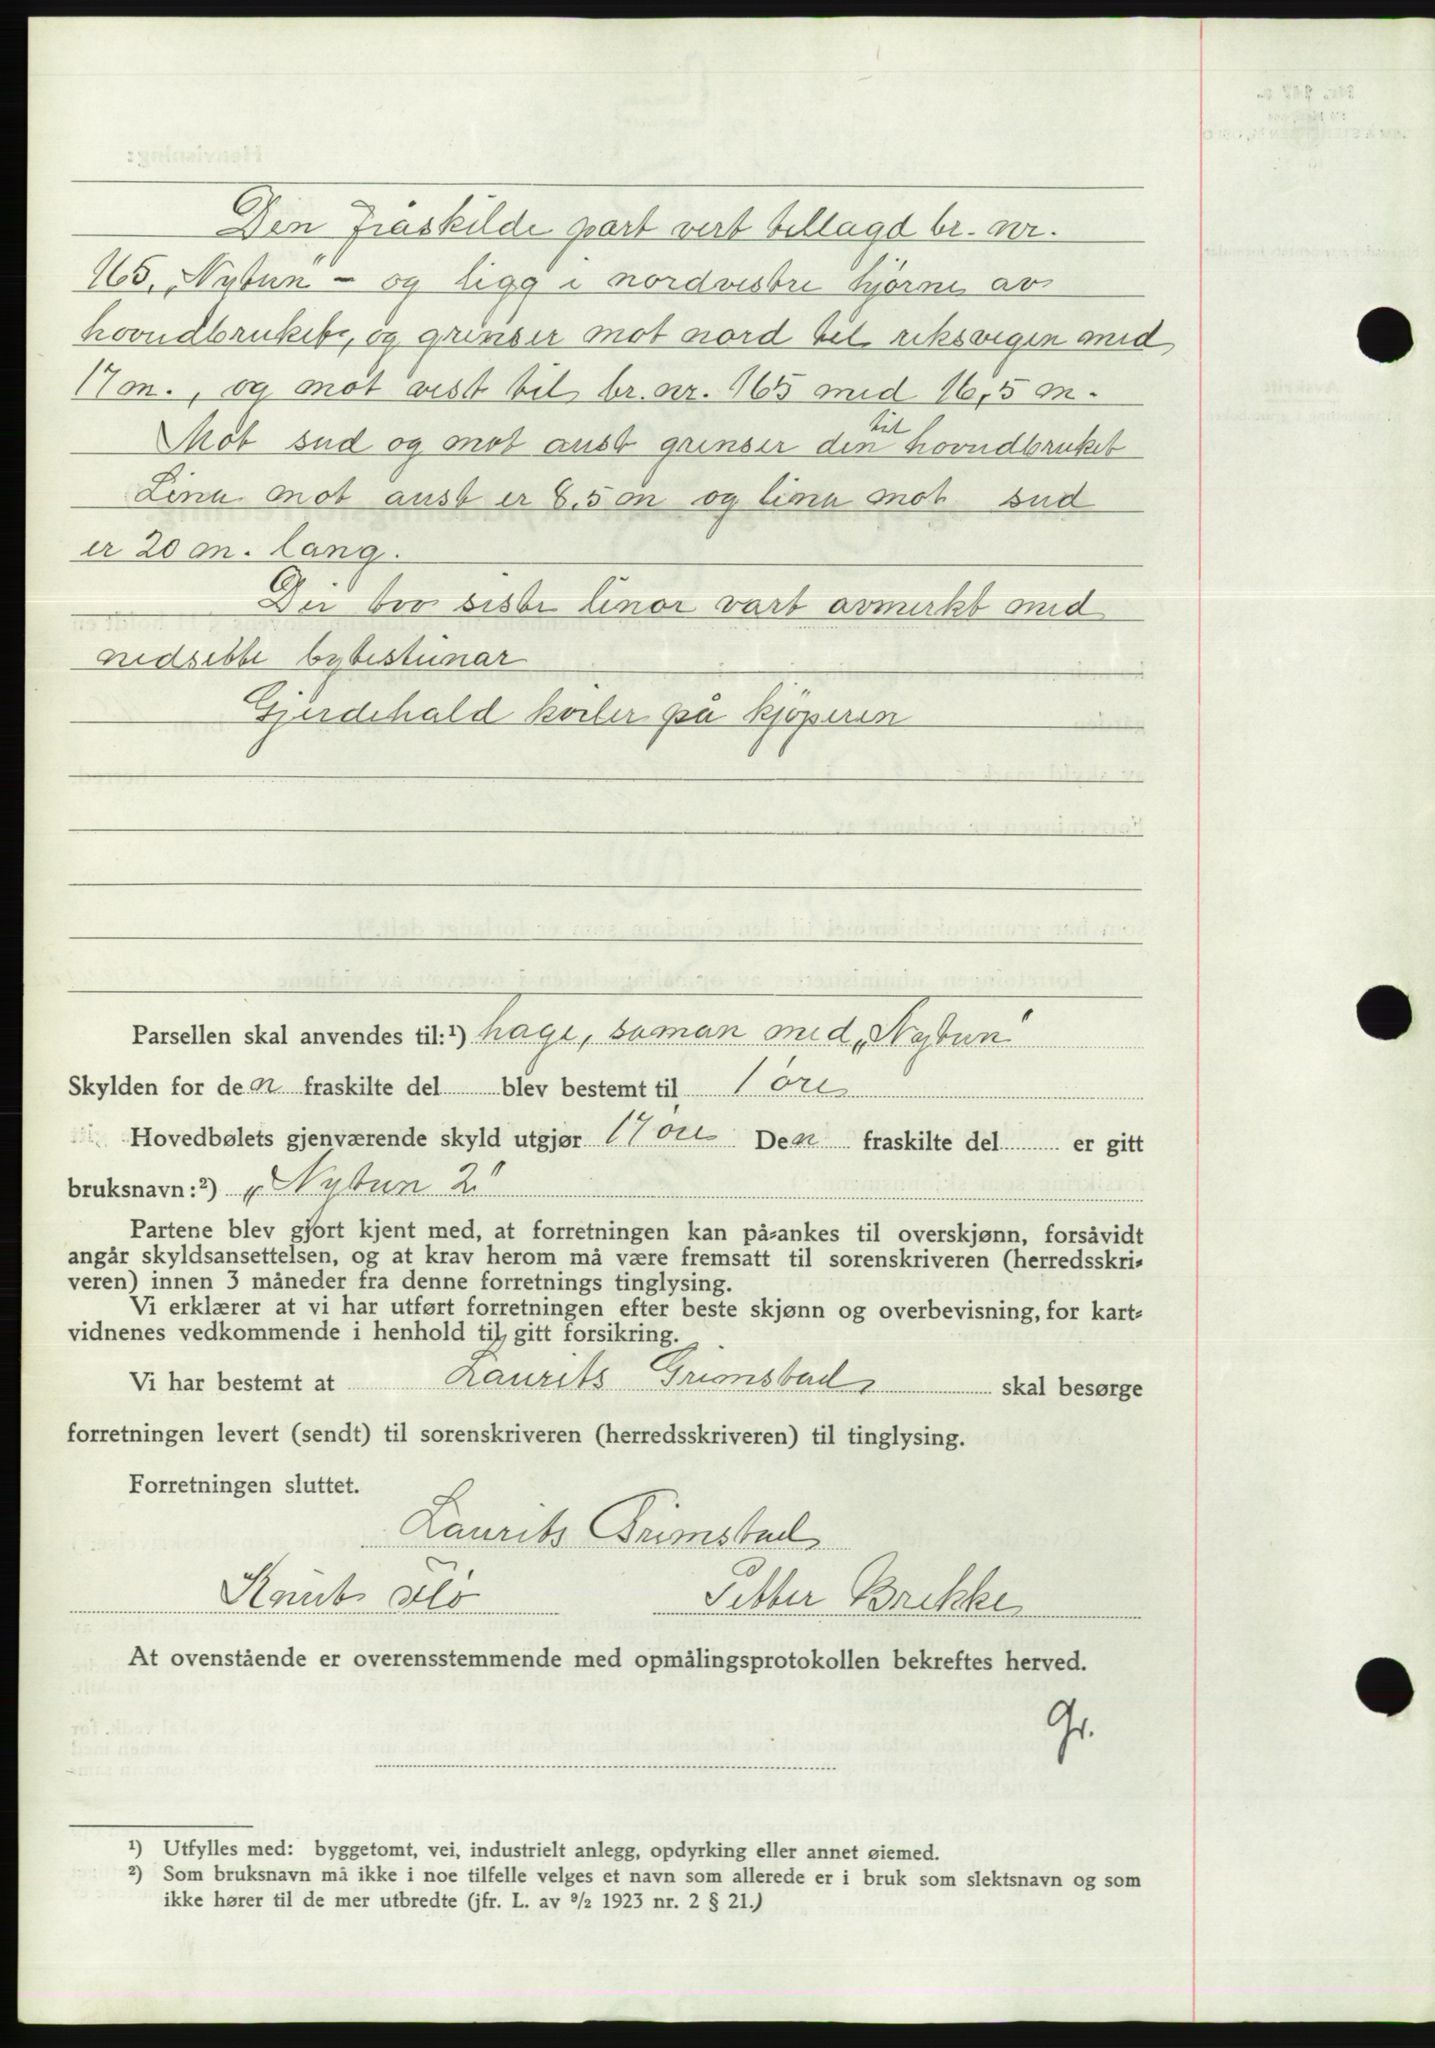 Den fråskilde part vert tillagd br. nr.
165, „Nytun" – og ligg i nordvestre hjørne av
hovudbruket, og grenser mot nord til riksvegen med
17 m., og mot vest til br. nr. 165 med 16,5 m.
Mot sud og mot aust grenser den til hovudbruket
Lina mot aust er 8,5 m og lina mot sud
er 20 m. lang.
Dei tvo siste linor vart avmerkt med
nedsette bytesteinar
Gjerdehald kviler på kjøperen
Parsellen skal anvendes til:¹) hage, saman med „Nytun"
Skylden for den fraskilte del blev bestemt til 1 øre
Hovedbølets gjenværende skyld utgjør 17 øre Den fraskilte del er gitt
bruksnavn:²) „Nytun 2"
Partene blev gjort kjent med, at forretningen kan på-ankes til overskjønn, forsåvidt
angår skyldsansettelsen, og at krav herom må være fremsatt til sorenskriveren (herredsskri-
veren) innen 3 måneder fra denne forretnings tinglysing.
Vi erklærer at vi har utført forretningen efter beste skjønn og overbevisning, for kart-
vidnenes vedkommende i henhold til gitt forsikring.
Vi har bestemt at Laurits Grimstad skal besørge
forretningen levert (sendt) til sorenskriveren (herredsskriveren) til tinglysing.
Forretningen sluttet.
Laurits Grimstad
Knut Flø Petter Brekke
At ovenstående er overensstemmende med opmålingsprotokollen bekreftes herved.
Gr.
¹) Utfylles med: byggetomt, vei, industrielt anlegg, opdyrking eller annet øiemed.
²) Som bruksnavn må ikke i noe tilfelle velges et navn som allerede er i bruk som slektsnavn og som
ikke hører til de mer utbredte (jfr. L. av ⁹/₂ 1923 nr. 2 § 21.)